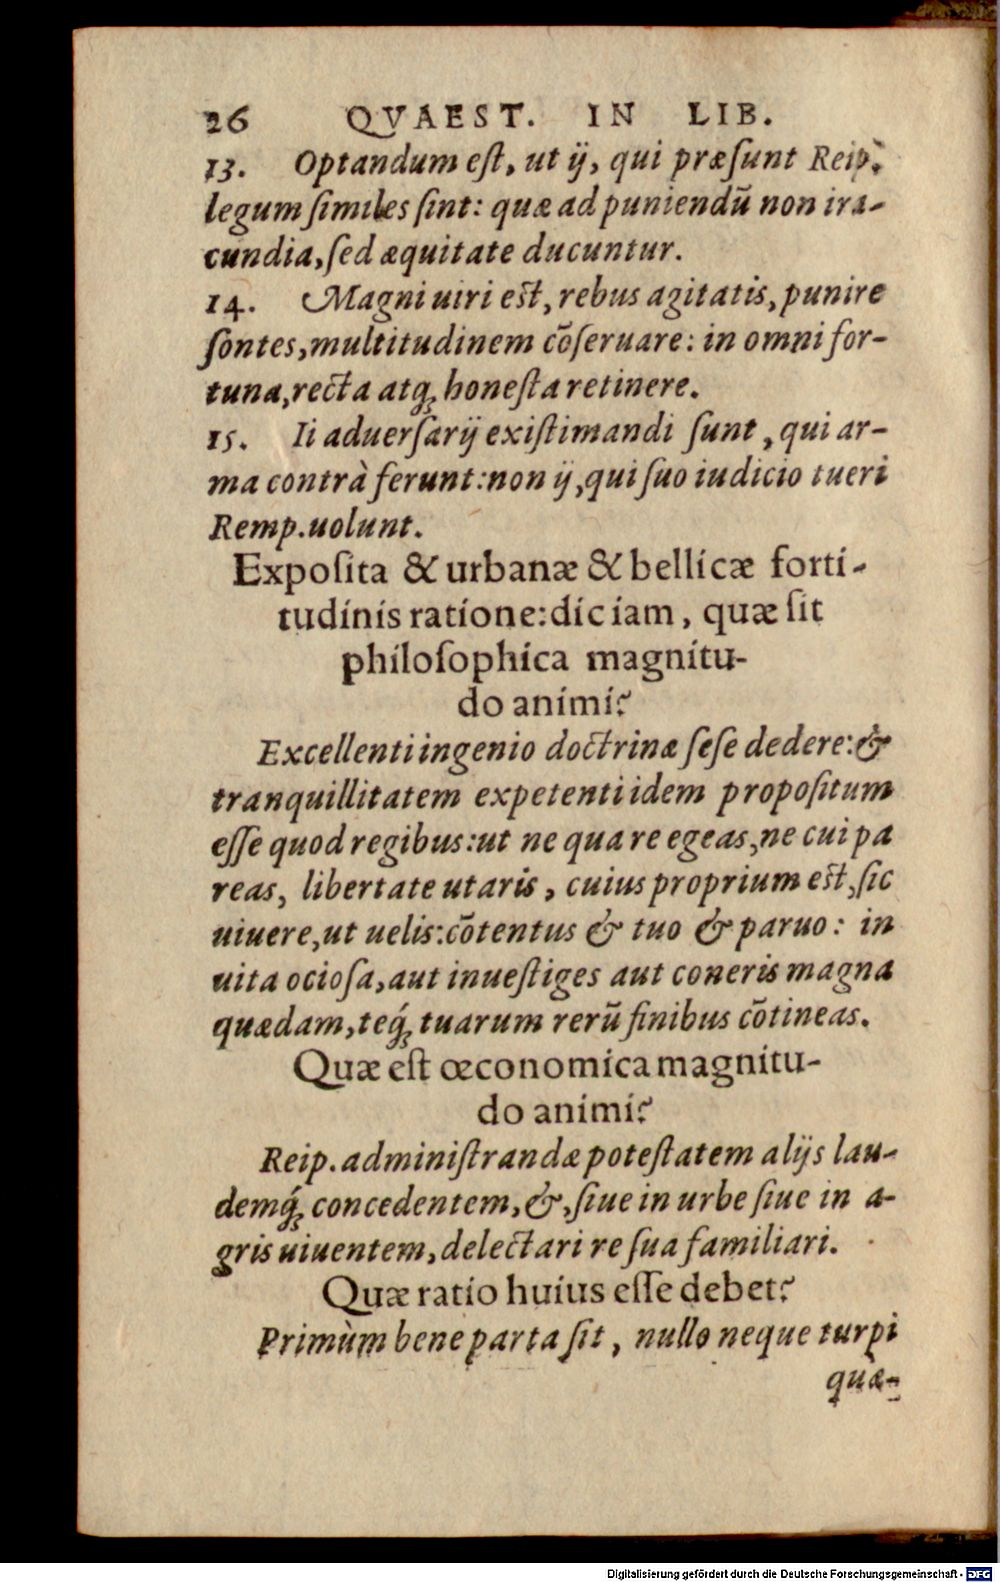 26 QVAEST. IN LIB.
13. Optandum eſt, ut ÿ, qui præſunt Reip.
legum ſimiles ſint: quæ ad puniendū non ira-
cundia, ſed æquitate ducuntur.
14. Magni uiri est, rebus agitatis, punire
ſontes, multitudinem cōſeruare: in omni for-
tuna, recta atq; honeſta retinere.
15. Ii aduerſarÿ exiſtimandi ſunt, qui ar-
ma contrà ferunt: non ÿ, qui ſuo iudicio tueri
Remp. uolunt.
Expoſita & urbanæ & bellicæ forti-
tudinis ratione: dic iam, quæ ſit
philoſophica magnitu-
do animi?
Excellenti ingenio doctrinæ ſeſe dedere: &
tranquillitatem expetenti idem propoſitum
eſſe quod regibus: ut ne qua re egeas, ne cui pa
reas, libertate utaris, cuius proprium est, ſic
uiuere, ut uelis: cōtentus & tuo & paruo: in
uita ocioſa, aut inueſtiges aut coneris magna
quædam, teq́; tuarum rerū finibus cōtineas.
Quæ eſt œconomica magnitu-
do animi?
Reip. adminiſtrandæ poteſtatem alijs lau-
demq́; concedentem, &, ſiue in urbe ſiue in a-
gris uiuentem, delectari re ſua familiari.
Quæ ratio huius eſſe debet?
Primùm bene parta ſit, nullo neque turpi
quæ-
Digitalisierung gefördert durch die Deutsche Forschungsgemeinschaft - DFG